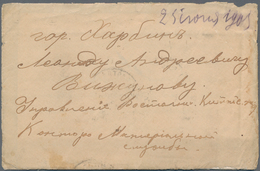 2 Июня 1905
гор. Харбинъ.
Леониду Андреевичу
Управление Восточн. Китайск.
Контора Матерiальной
службы